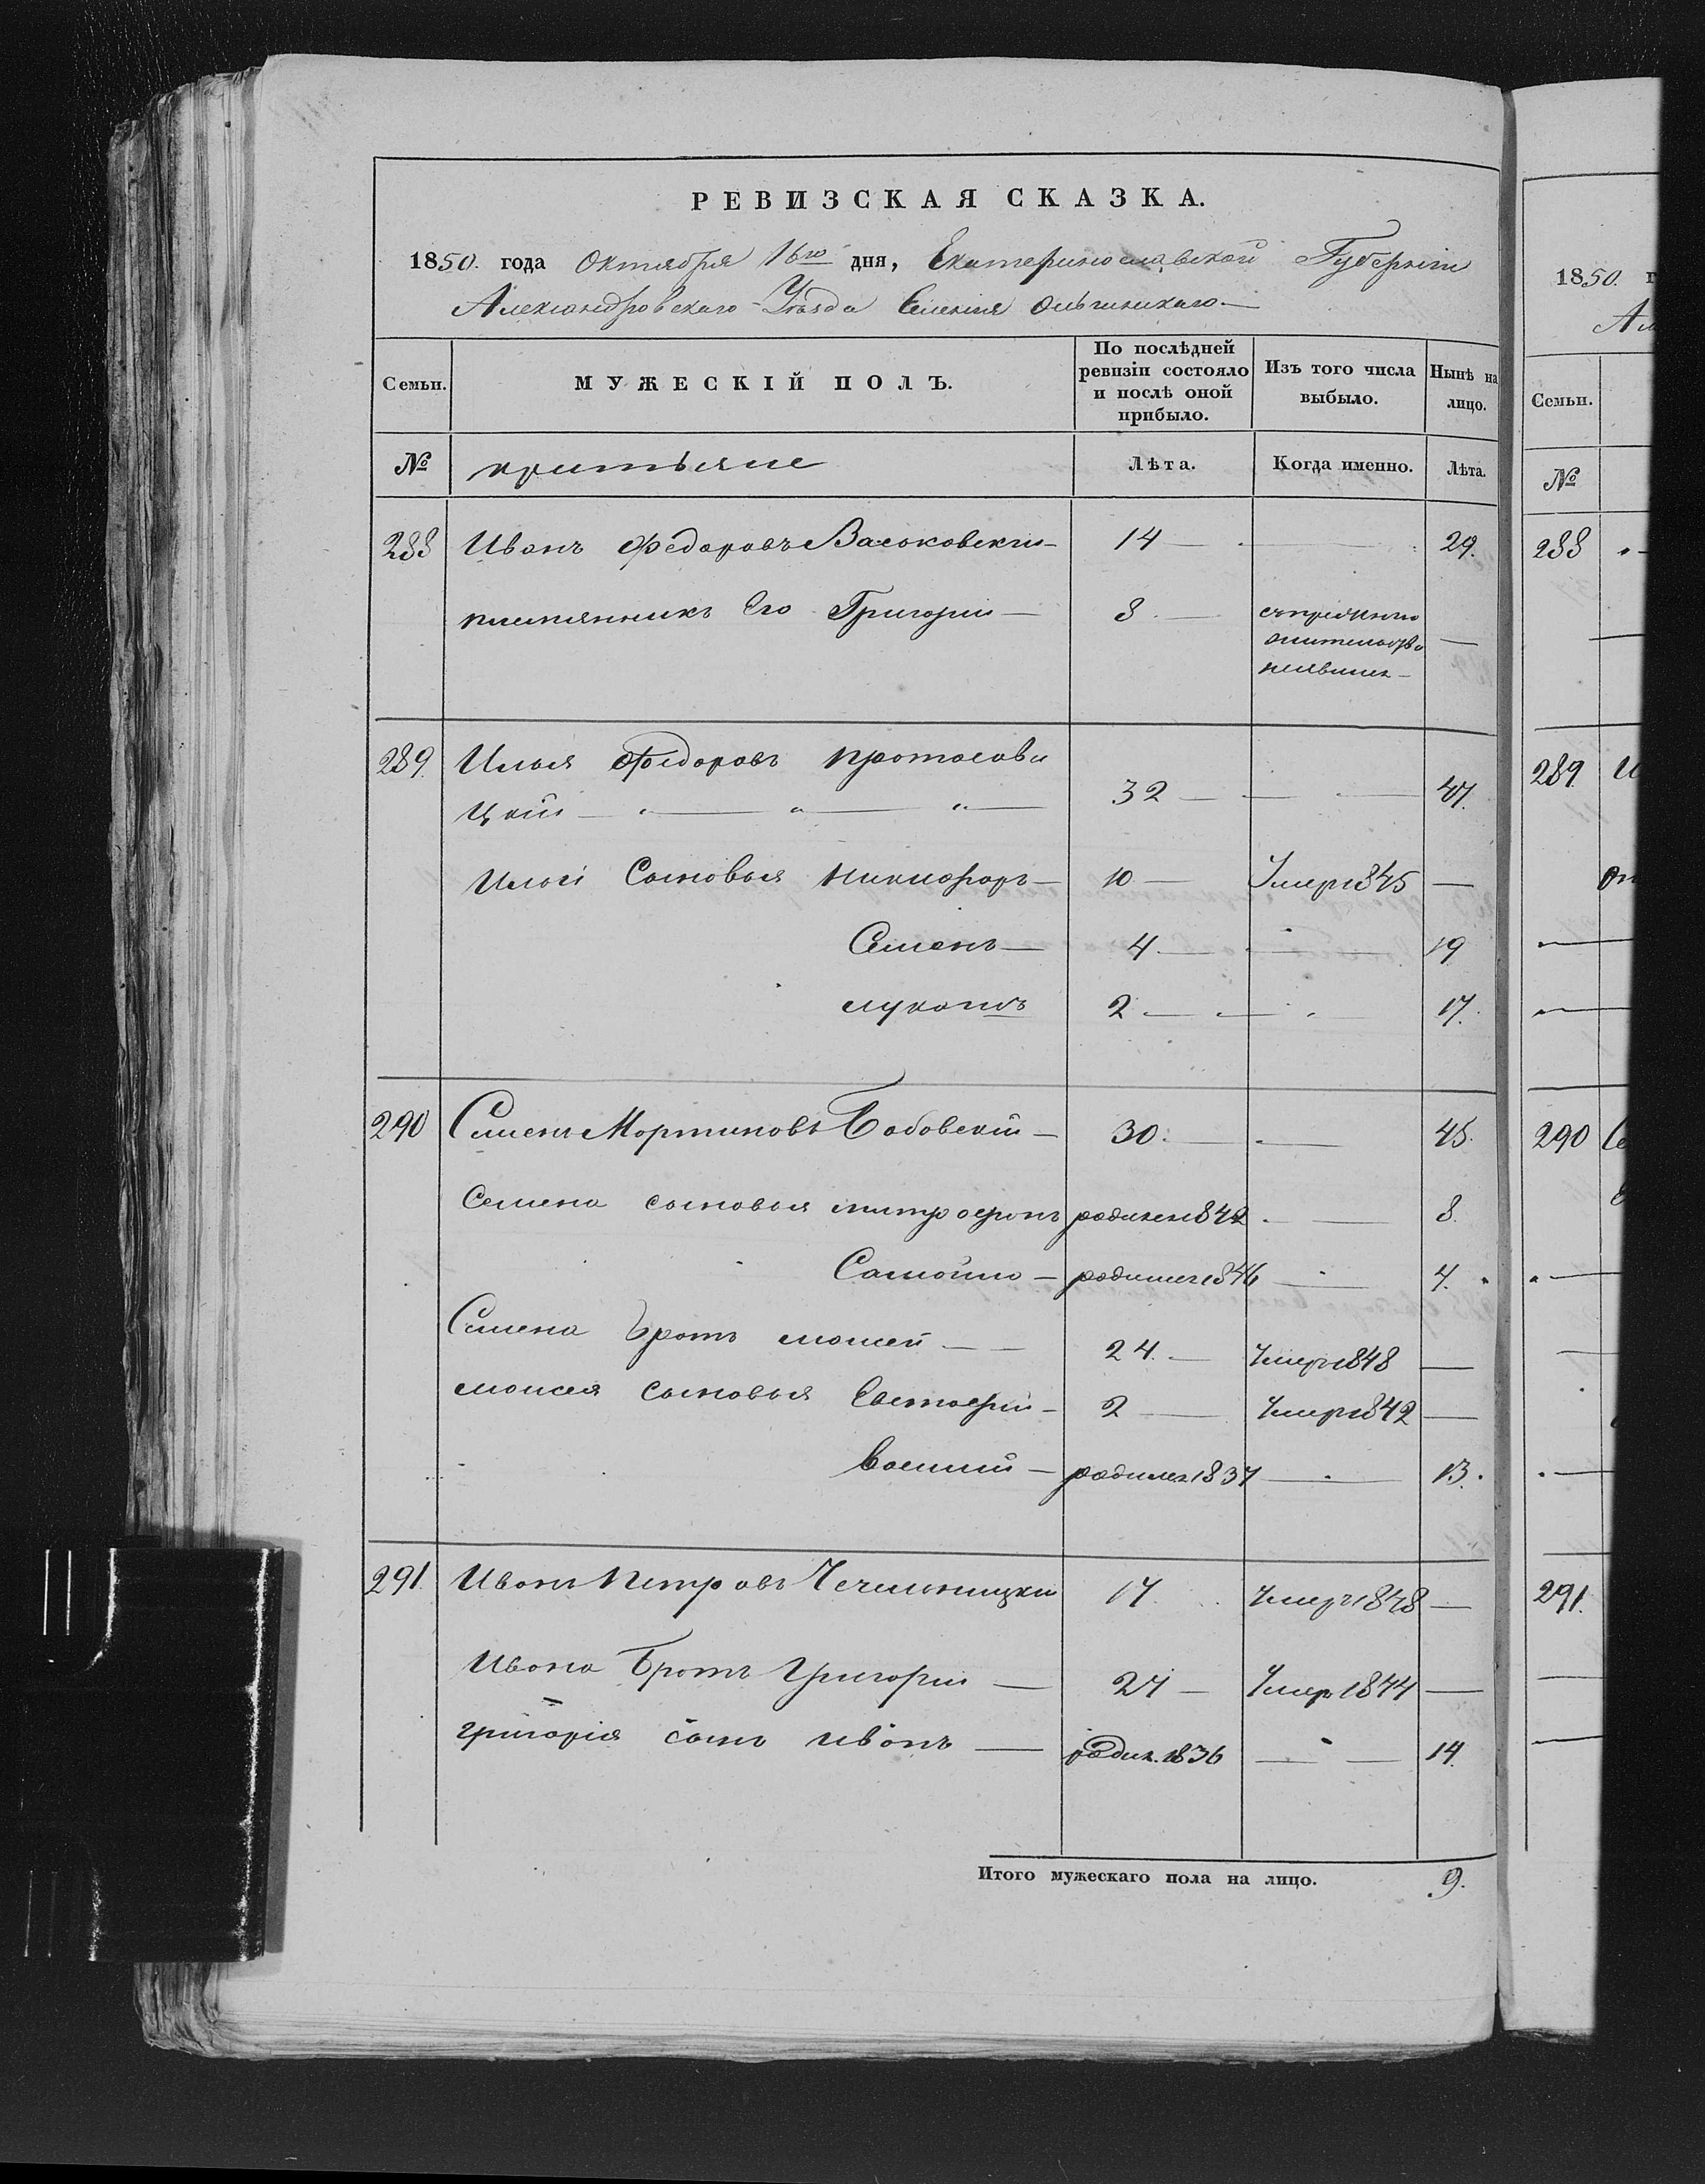 РЕВИЗСКАЯ СКАЗКА.
1850. года Октября 16го дня, Екатеринославской Губерніи
Александровского Уѣзда Селенія Ольгинскаго.—
Семьи.
МУЖЕСКІЙ ПОЛЪ.
По послѣдней ревизіи состояло и послѣ оной прибыло.
Изъ того числа выбыло.
Нынѣ на лицо.
№
Лѣта.
Когда именно.
Лѣта.
288 Иванъ Федоровъ Васьковскіи — 14 — 29.
племянникъ Его Григорій — 8 —
жительства
неявился —
289. Илья Федоровъ Протосави
цкій — 32 — 47.
Ильи Сыновья Никифоръ — 10 — Умеръ 1845 —
Семенъ — 4 — 19
2 — 17.
290 Семенъ Мартиновъ Бобовскій — 30. — 45.
Семена сыновья митрофонъ родился 1842 — 8.
Самойло — родился 1846 — 4.
Семена братъ моисей — 24. — Умеръ 1848 —
моисея сыновья Евстафій — 2 — Умеръ 1842 —
Василій — родился 1837 — 13.
291. Иванъ Петровъ Чечельницки 17. Умеръ 1848 —
Ивана братъ Григорій — 27 — Умеръ 1844 —
григорія сынъ иванъ — родил. 1836 — 14.
Итого мужескаго пола на лицо. 9.
1850. г
Семьи.
№
288
289.
290
291.